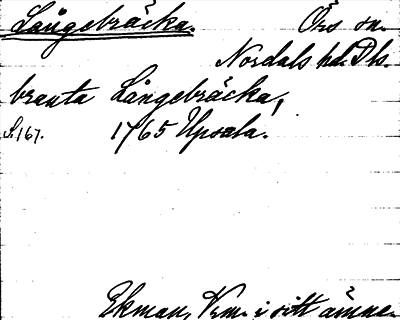 Långebräcka. Örs sn.
Nordals hd. Dls.
branta Långebräcka,
S. 167. 1765 Upsala.
Ekman, Vrm. i sitt ämne